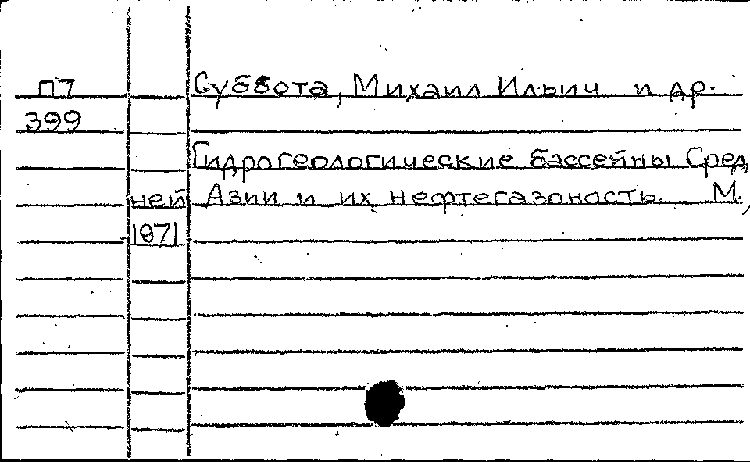 П7 Суббота, Михаил Ильич и др.
399
Гидрогеологические бассейны Сред
ней Азии и их нефтегазоность. М.,
1971